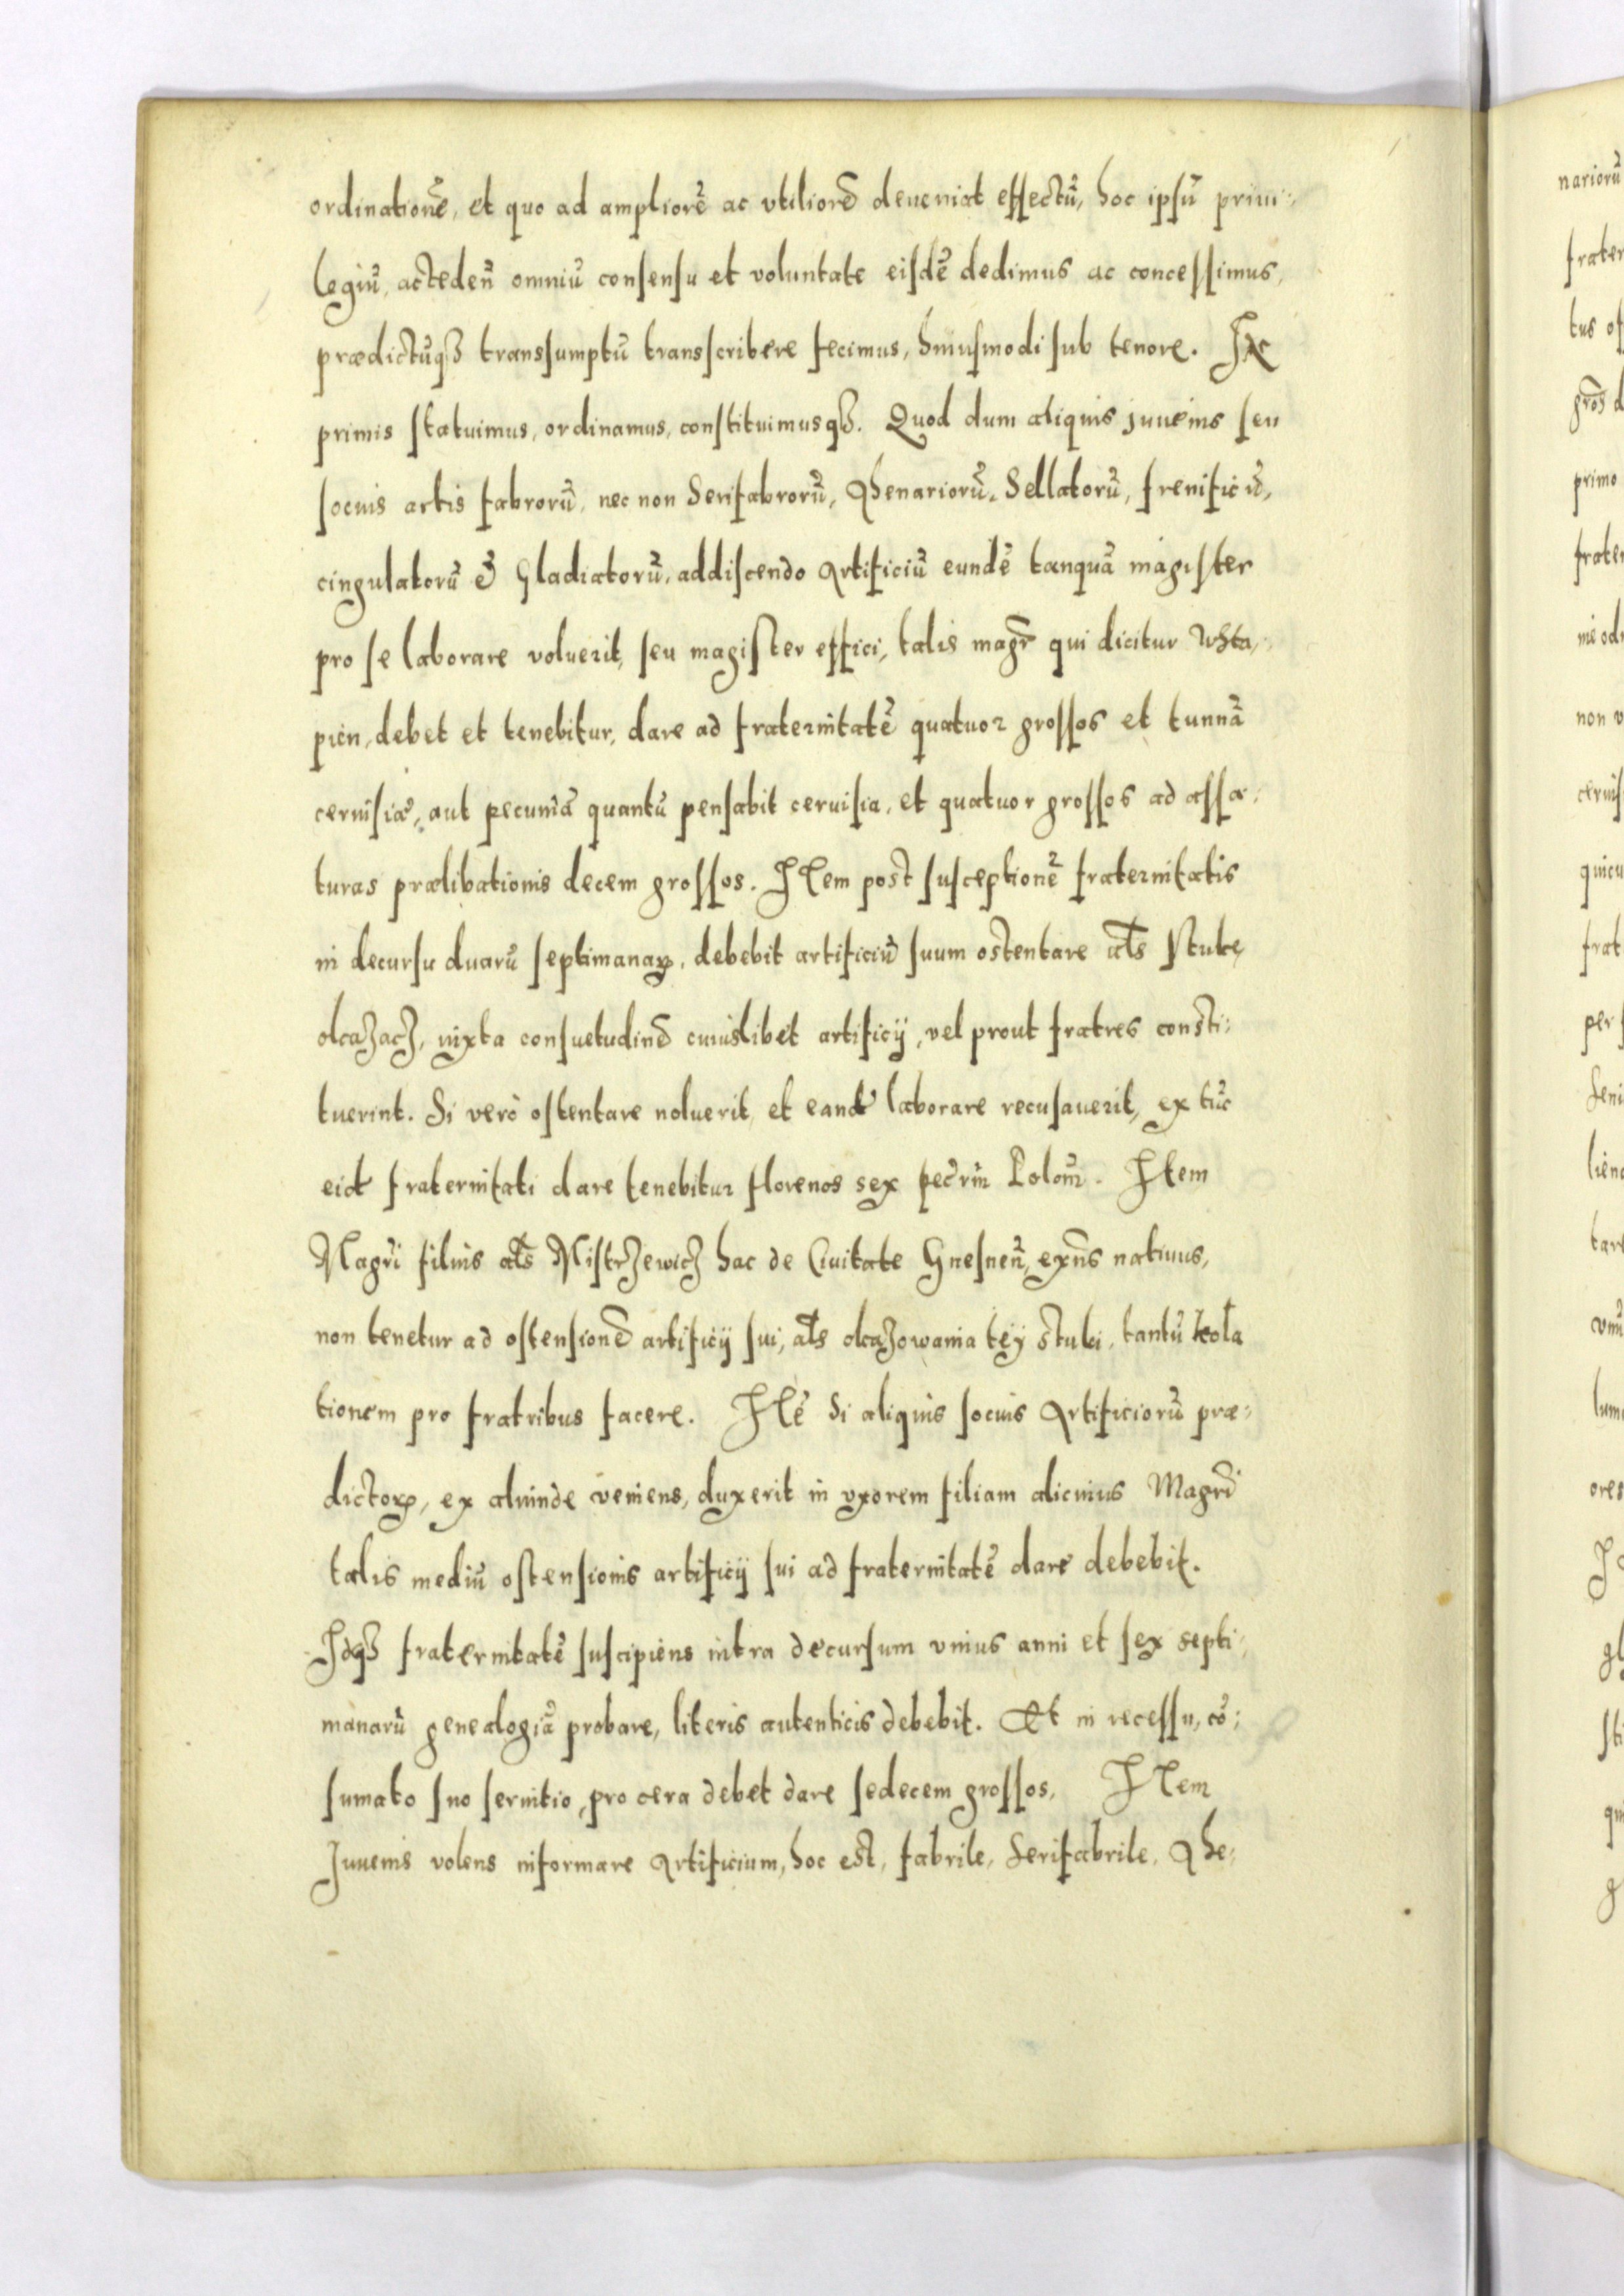 ordinationẽ, et quo ad ampliorẽ ac vtiliorẽ deueniat effectũ, hoc ipsũ priui:
legiũ, accedeñ omniũ consensu et voluntate eisdẽ dedimus ac concessimus,
prædictũqȝ transsumptũ transscribere fecimus, huiusmodi sub tenore.
primis statuimus, ordinamus, constituimusqȝ. Quod dum aliquis juuenis seu
socius artis fabrorũ, nec non Serifabrorũ, Ahenariorũ, Sellatorũ, frenificũ,
cingulatorũ & Gladiatorũ, addiscendo Artificiũ eundẽ tanquã magister
pro se laborare voluerit, seu magister effici, talis magr̃ qui dicitur Wsta,
pien, debet et tenebitur, dare ad fraternitatẽ quatuor grossos et tunnã
ceruisiæ, aut pecuniã quantũ pensabit ceruisia, et quatuor grossos ad assa:
turas prælibationis decem grossos. Item post susceptionẽ fraternitatis
in decursu duarũ septimanaꝝ, debebit artificiũ suum ostentare als̃ Stuke
okazacz, iuxta consuetudinẽ cuiuslibet artificij, vel prout fratres consti:
tuerint. Si verò ostentare noluerit, et eand̃ laborare recusauerit, ex tũc
eid̃ fraternitati dare tenebitur florenos sex pec̃rũ Poloñ. Item
Magr̃i filius als̃ Mistrzewicz hac de Ciuitate Gnesneñ, exñs natiuus,
non tenetur ad ostensionẽ artificij sui, als̃ okazowania tey stuki, tantũ kola
tionem pro fratribus facere. Itẽ Si aliquis socius Artificiorũ præ:
dictoꝝ, ex aliunde veniens, duxerit in vxorem filiam alicuius Magr̃i
talis mediũ ostensionis artificij sui ad fraternitatẽ dare debebit.
Idqȝ fraternitatẽ suscipiens intra decursum vnius anni et sex septi:
manarũ genealogiã probare, literis autenticis debebit. Et in recessu, cõ:
sumato suo seruitio, pro cera debet dare sedecem grossos, Item
Juuenis volens informare Artificium, hoc est, fabrile, Serifabrile, Ahe: